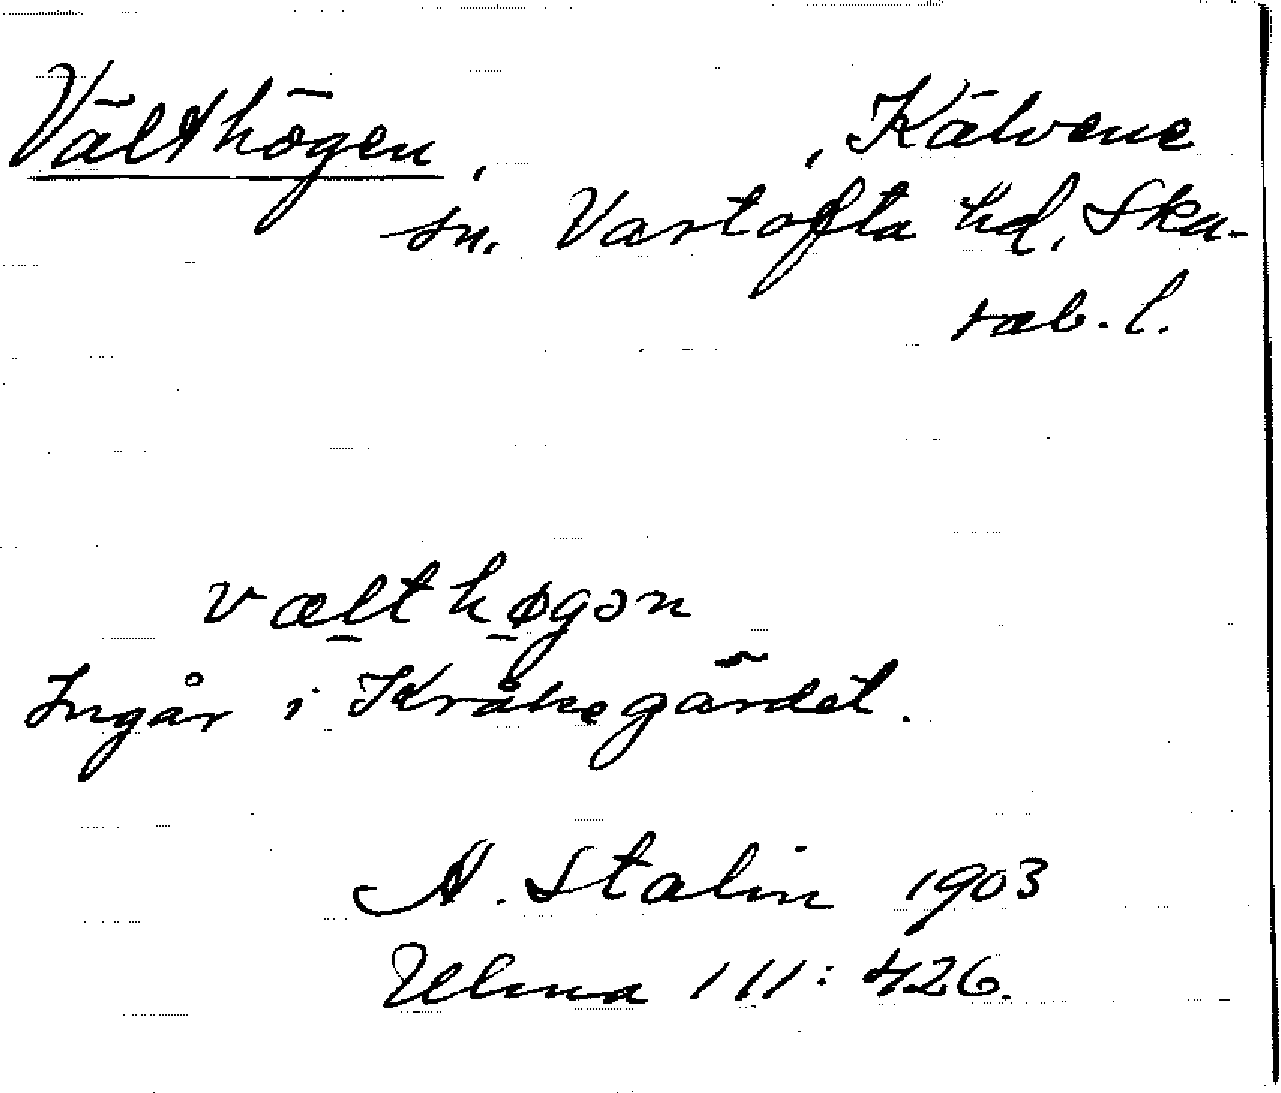 Välthögen, , Kälvene
sn. Vartofta hd. Ska-
rab. l.
vælthøgən
Ingår i Kråkegärdet.
A. Stalin 1903
Ulma 111: 426.